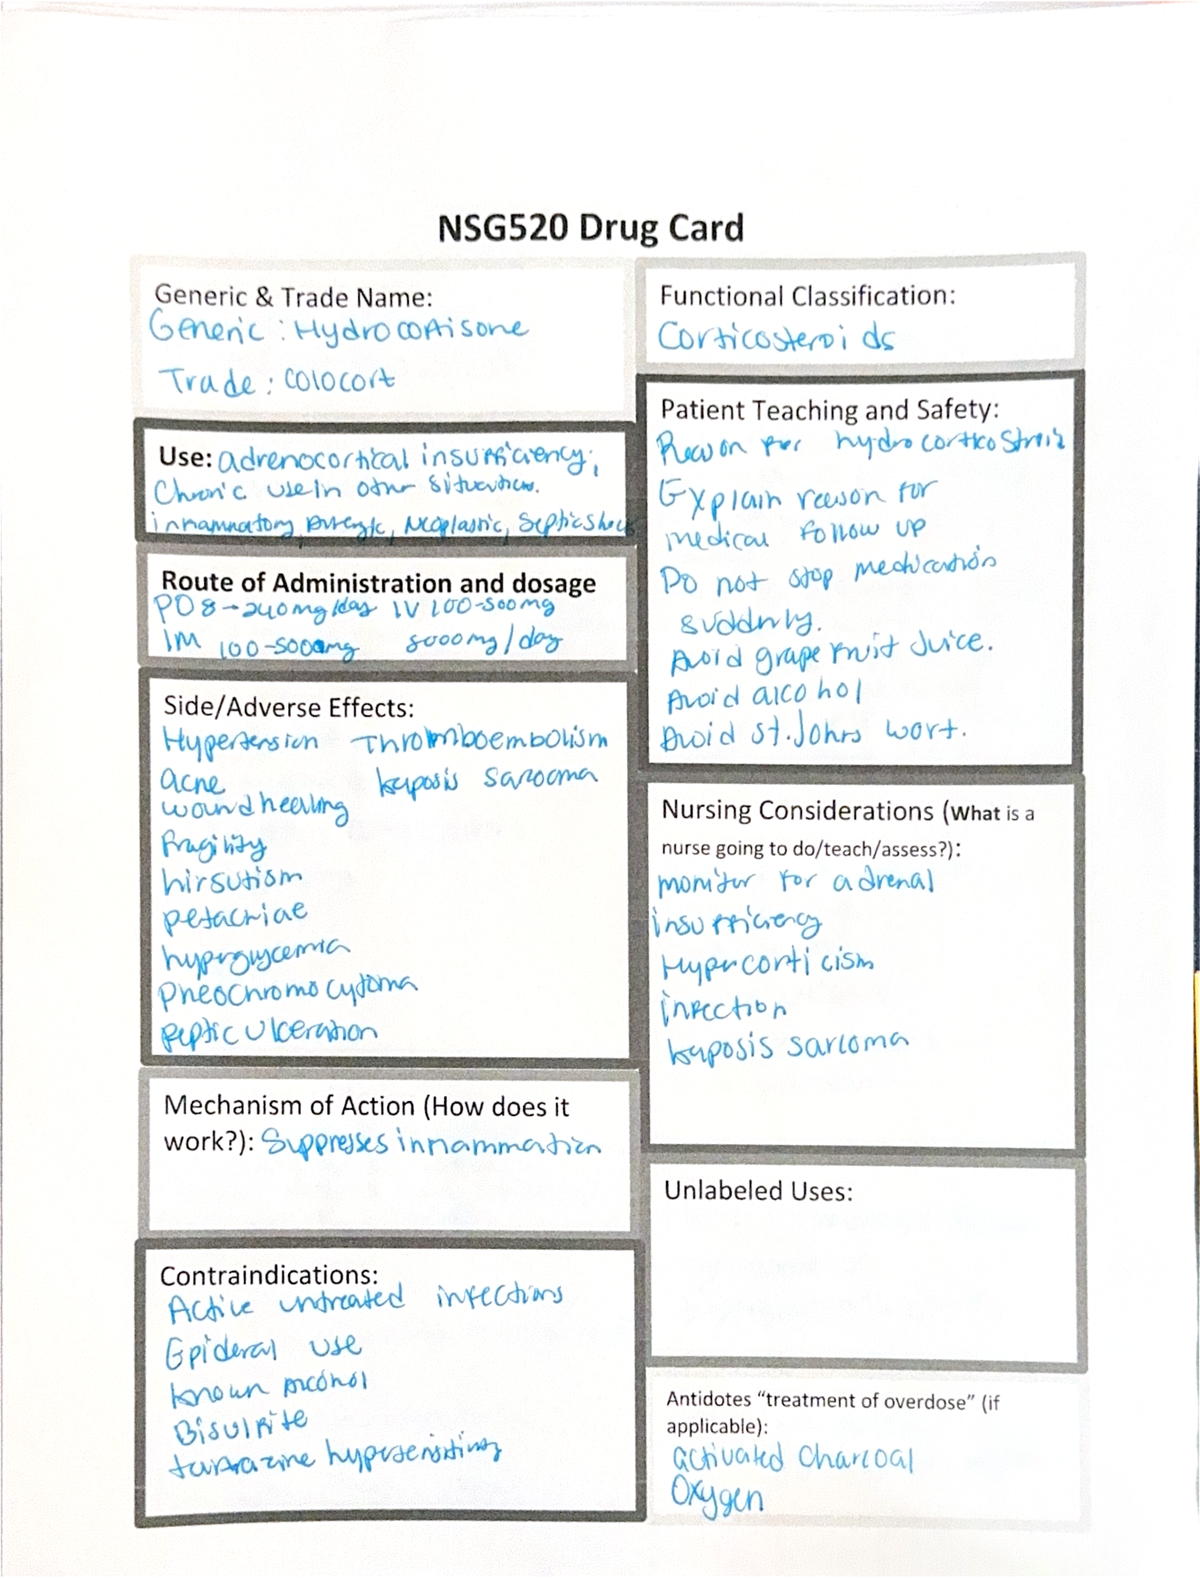 NSG520 Drug Card
Generic & Trade Name:
Generic: Hydrocortisone
Trade: Colocort
Use: adrenocortical insufficiency;
Chronic use in other situations.
inflammatory, allergic, Neoplastic, Septic shock
Route of Administration and dosage
PO 8-240mg/day IV 100-500mg
IM 100-500mg 8000mg/day
Side/Adverse Effects:
Hypertension Thromboembolism
acne kaposis sarcoma
wound healing
fragility
hirsutism
petachiae
hyperglycemia
Pheochromocytoma
peptic ulceration
Mechanism of Action (How does it
work?): Suppresses inflammation
Contraindications:
Active untreated infections
Epideral use
known alcohol
Bisulfite
tartrazine hypersensitivity
Functional Classification:
Corticosteroids
Patient Teaching and Safety:
Reason for
Explain reason for
medical follow up
Do not stop medication
suddenly.
Avoid grapefruit juice.
Avoid alcohol
Avoid st. Johns wort.
Nursing Considerations (What is a
nurse going to do/teach/assess?):
monitor for adrenal
insufficiency
Hypercorticism
infection
kaposis sarcoma
Unlabeled Uses:
Antidotes "treatment of overdose" (if
applicable):
activated charcoal
Oxygen